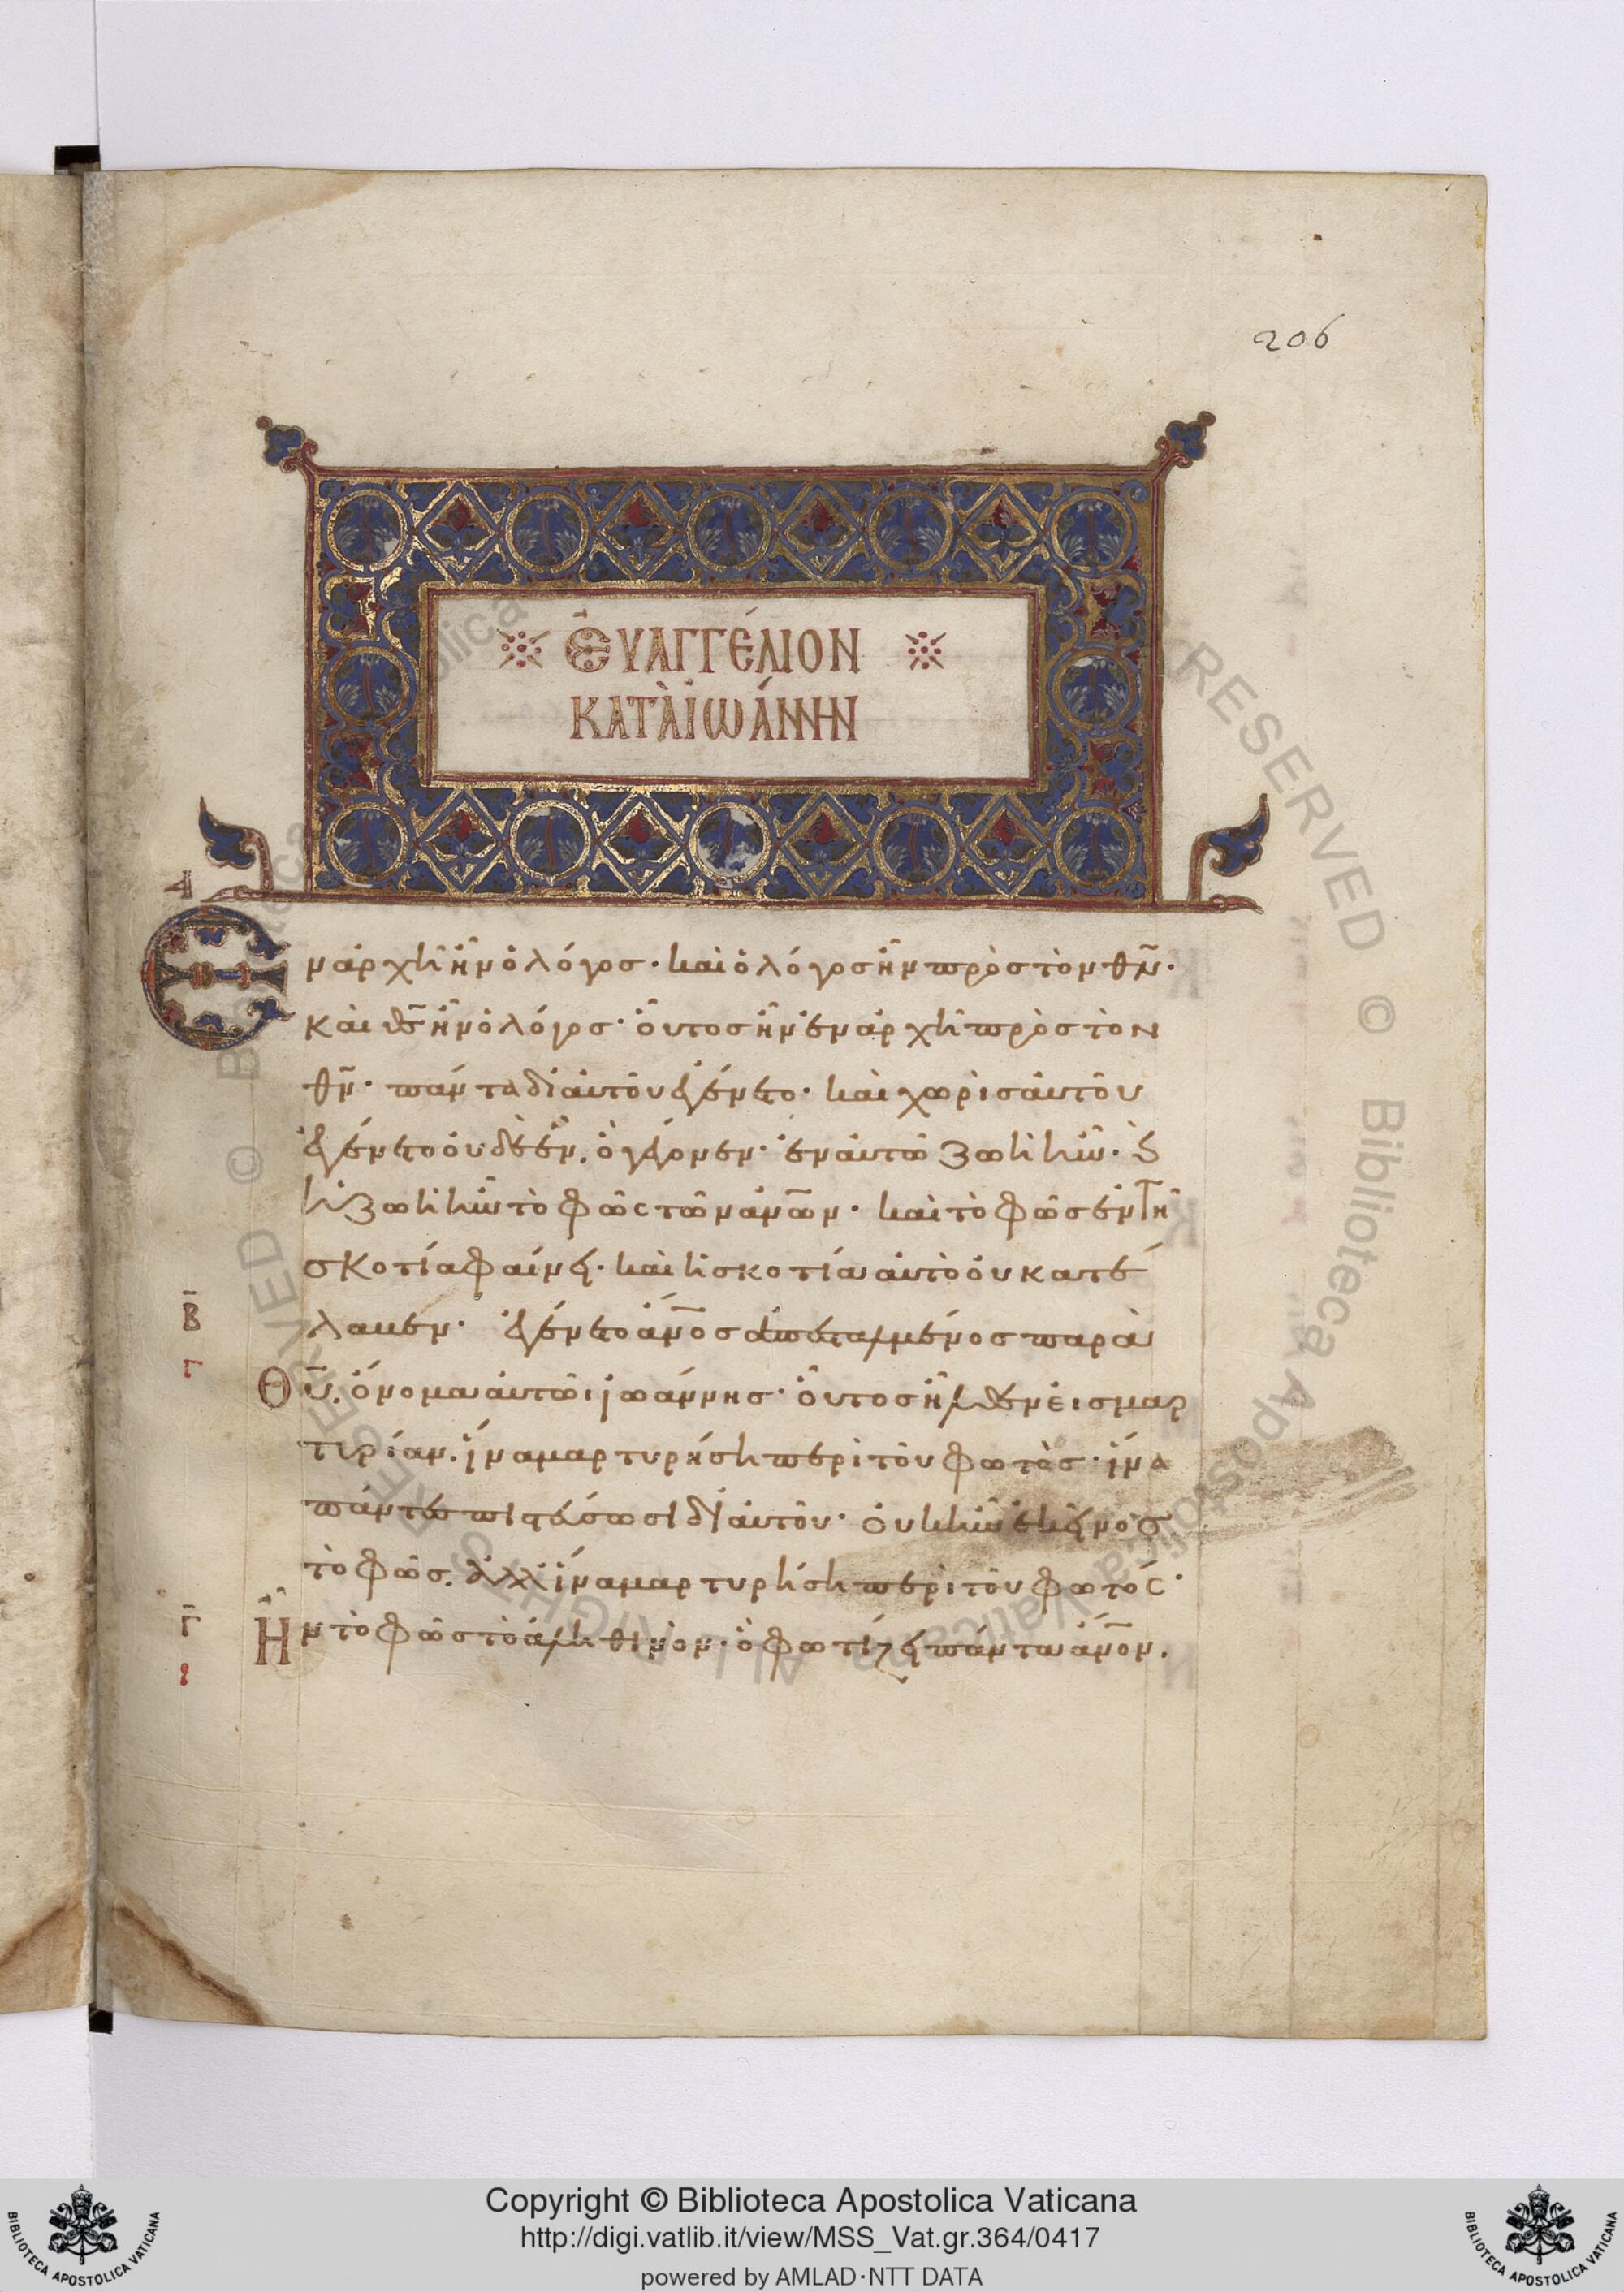 206
ΕΥΑΓΓΕΛΙΟΝ
ΚΑΤᾺ ἸΩΆΝΝΗΝ
Ἐν ἀρχῆ ἦν ὁ λόγος· καὶ ὁ λόγος ἦν πρὸς τὸν θν·
καὶ θς ἦν ὁ λόγος· οὗτος ἦν ἐν ἀρχῆ πρὸς τὸν
θν· πάντα δι αὐτοῦ ἐγένετο· καὶ χωρὶς αὐτοῦ
ἐγένετο οὐδὲ ἕν. ὃ γέγονεν· ἐν αὐτῶ ζωὴ ἦν· καὶ
ἡ ζωὴ ἦν τὸ φῶς τῶν ἀνων· καὶ τὸ φῶς ἐν τῆ
σκοτία φαίνει· καὶ ἡ σκοτία αὐτὸ οὐ κατέ
Β
λαβεν· ἐγένετο ἄνος ἀπεσταλμένος παρὰ
Γ
Θυ. ὄνομα αὐτῶι ἰωάννης· οὗτος ἦλθεν εἰς μαρ
τυρίαν. ἵνα μαρτυρήση περὶ τοῦ φωτὸς· ἵνα
πάντες πιστεύσωσι δι αὐτοῦ· οὐκ ἦν ἐκεῖνος
τὸ φῶς. ἀλλ ἵνα μαρτυρήση περὶ τοῦ φωτός·
Γ
Ἦν τὸ φῶς τὸ ἀληθινὸν· ὃ φωτίζει πάντα ἄνον.
Copyright © Biblioteca Apostolica Vaticana
http://digi.vatlib.it/view/MSS_Vat.gr.364/0417
powered by AMLAD·NTT DATA
BIBLIOTECA APOSTOLICA VATICANA
BIBLIOTECA APOSTOLICA VATICANA